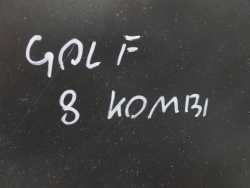 GOLF
8 KOMBI